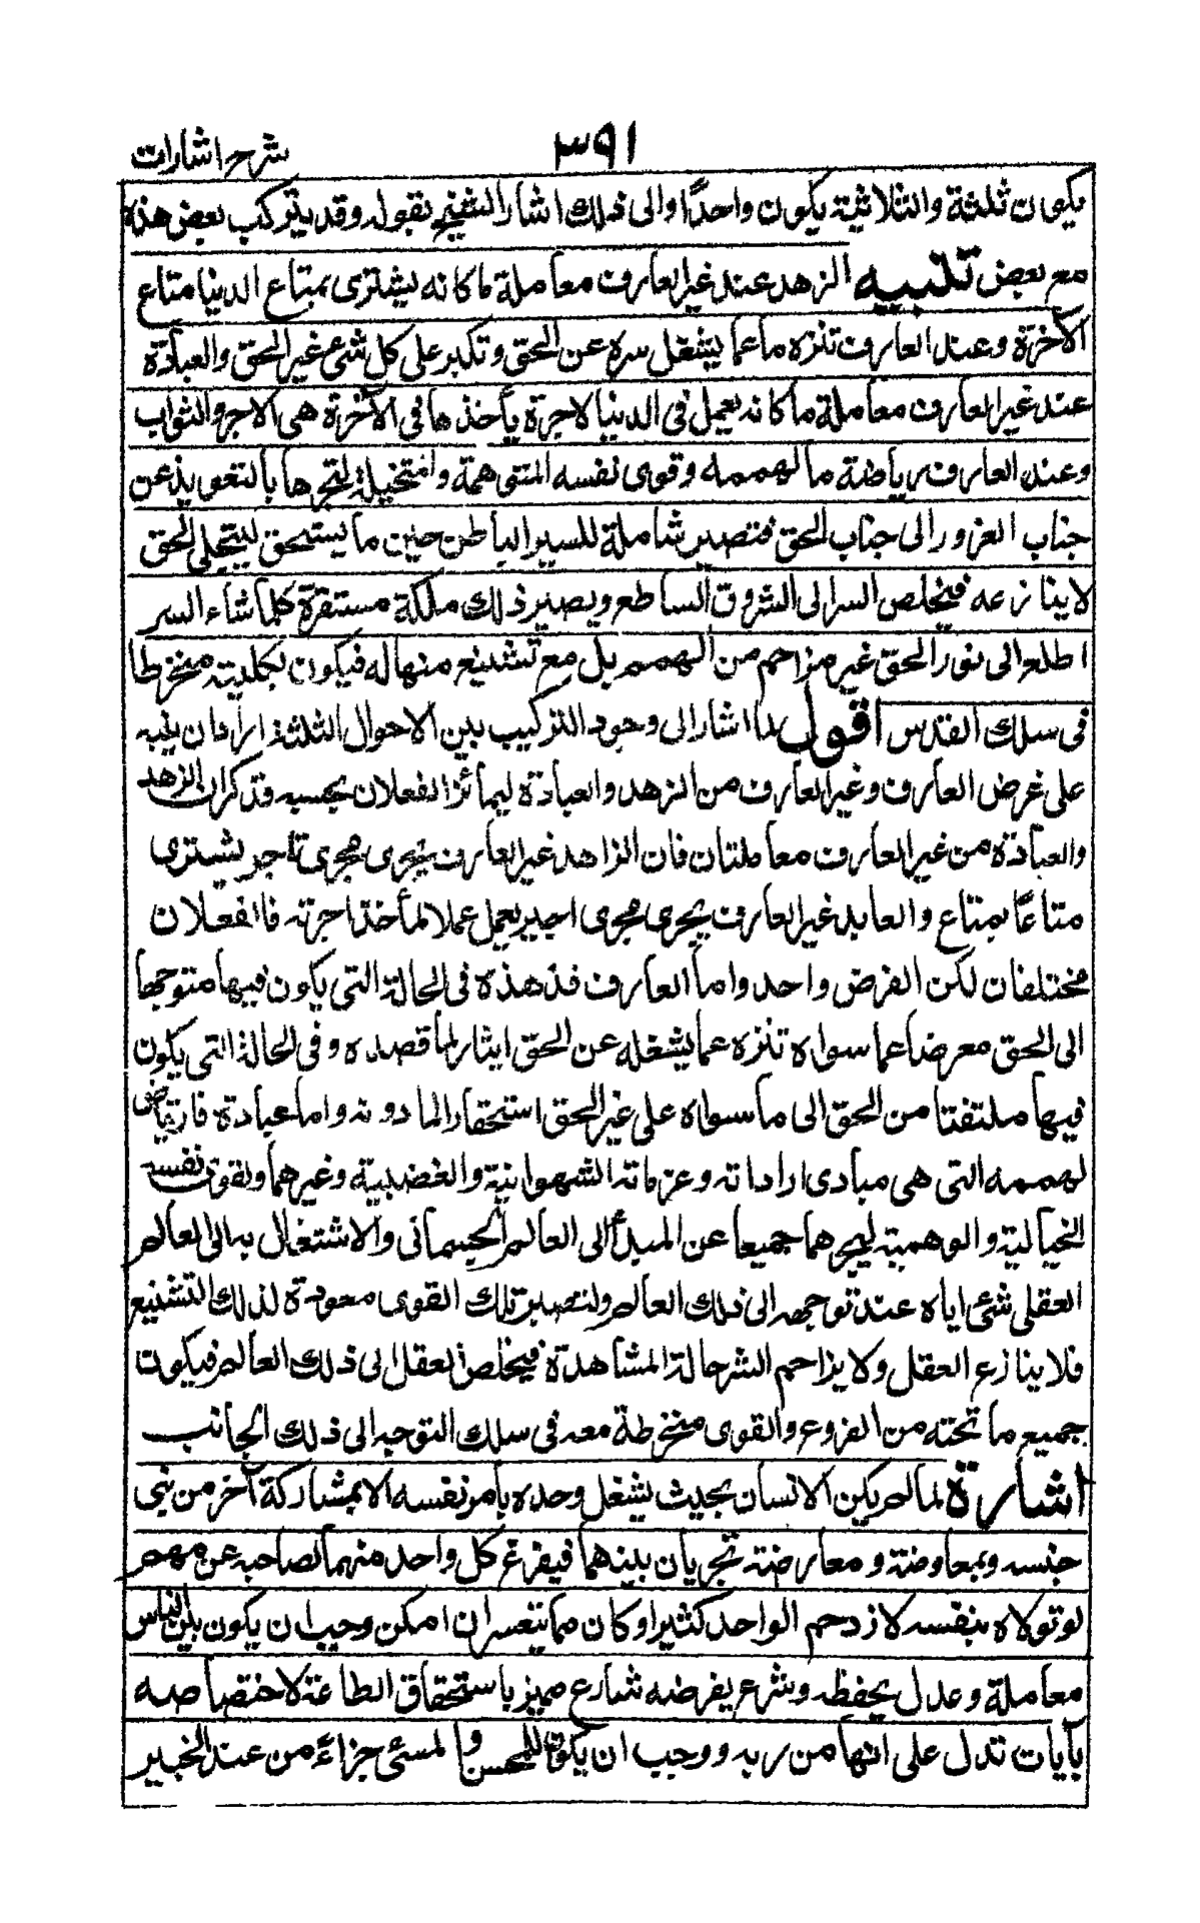 شرح اشارات
٣٩١
يكون ثلثة والثلاثية يكون واحدًا والى ذلك اشار الشيخ بقوله وقد يتركب بعض هذه
مع بعض تنبيه الزهد عند غير العارف معاملة ما كانه يشترى بمتاع الدنيا متاع
الآخرة وعند العارف تنزه ما عما يشغل سره عن الحق وتكبر على كل شئ غير الحق والعبادة
عند غير العارف معاملة ما كانه يعمل فى الدنيا لاجرة يأخذها فى الآخرة هى الاجر والثواب
وعند العارف رياضة ما لهممه وقوى نفسه المتوهمة والمتخيلة لتجرها بالتعويذ عن
جناب الغرور الى جناب الحق فتصير شاملة للسير الباطن حين ما يستحق ليتجلى الحق
لا ينازعه فيخلص السر الى الشروق الساطع ويصير ذلك ملكة مستقرة كلما شاء السر
اطلع الى نور الحق غير مزاحم من الهمم بل مع تشنيع منها له فيكون بكليته منخرطا
فى سلك القدس اقول لما اشار الى وجود التركيب بين الاحوال الثلثة اراد ان ينبه
على غرض العارف وغير العارف من الزهد والعبادة ليمائز الفعلان بحسبه فذكر ان الزهد
والعبادة من غير العارف معاملتان فان الزاهد غير العارف يجرى مجرى تاجر يشترى
متاعًا بمتاع والعابد غير العارف يجرى مجرى اجير يعمل عملا لمأخذ اجرته فالفعلان
مختلفان لكن الغرض واحد واما العارف فذهذه فى الحالة التى يكون فيها متوجها
الى الحق معرضا عما سواه تنزه عما يشغله عن الحق ايثار لما قصده وفى الحالة التى يكون
فيها ملتفتا من الحق الى ما سواه على غير الحق استحقارا لما دونه واما عبادة فارتياض
لهممه التى هى مبادى اراداته وعزماته الشهوانية والغضبية وغيرهما ولقوى نفسه
الخيالية والوهمية ليجرها جميعا عن الميل الى العالم الجسمانى والاشتغال به الى العالم
العقلى شئ اياه عند توجهه الى ذلك العالم ولتصير تلك القوى معودة لذلك التشنيع
فلا ينازع العقل ولا يزاحم الشر حالة المشاهدة فيخلص العقل الى ذلك العالم فيكون
جميع ما تحته من الفروع والقوى منخرطة معه فى سلك التوجه الى ذلك الجانب
اشارة لما لم يكن الانسان بحيث يشغل وحده بأمر نفسه الا بمشاركة آخر من بنى
جنسه وبمعاوضة ومعارضة تجريان بينهما فيفرغ كل واحد منهما لصاحبه عن مهم
لو تولاه بنفسه لازدحم الواحد كثير او كان مما يتعسر ان امكن وجب ان يكون بين الناس
معاملة وعدل يحفظه وشرع يفرضه شارع مميز باستحقاق الطاعة لاختصاصه
بآيات تدل على انها من ربه ووجب ان يكون للمحسن والمسئ جزاءً من عند الخبير